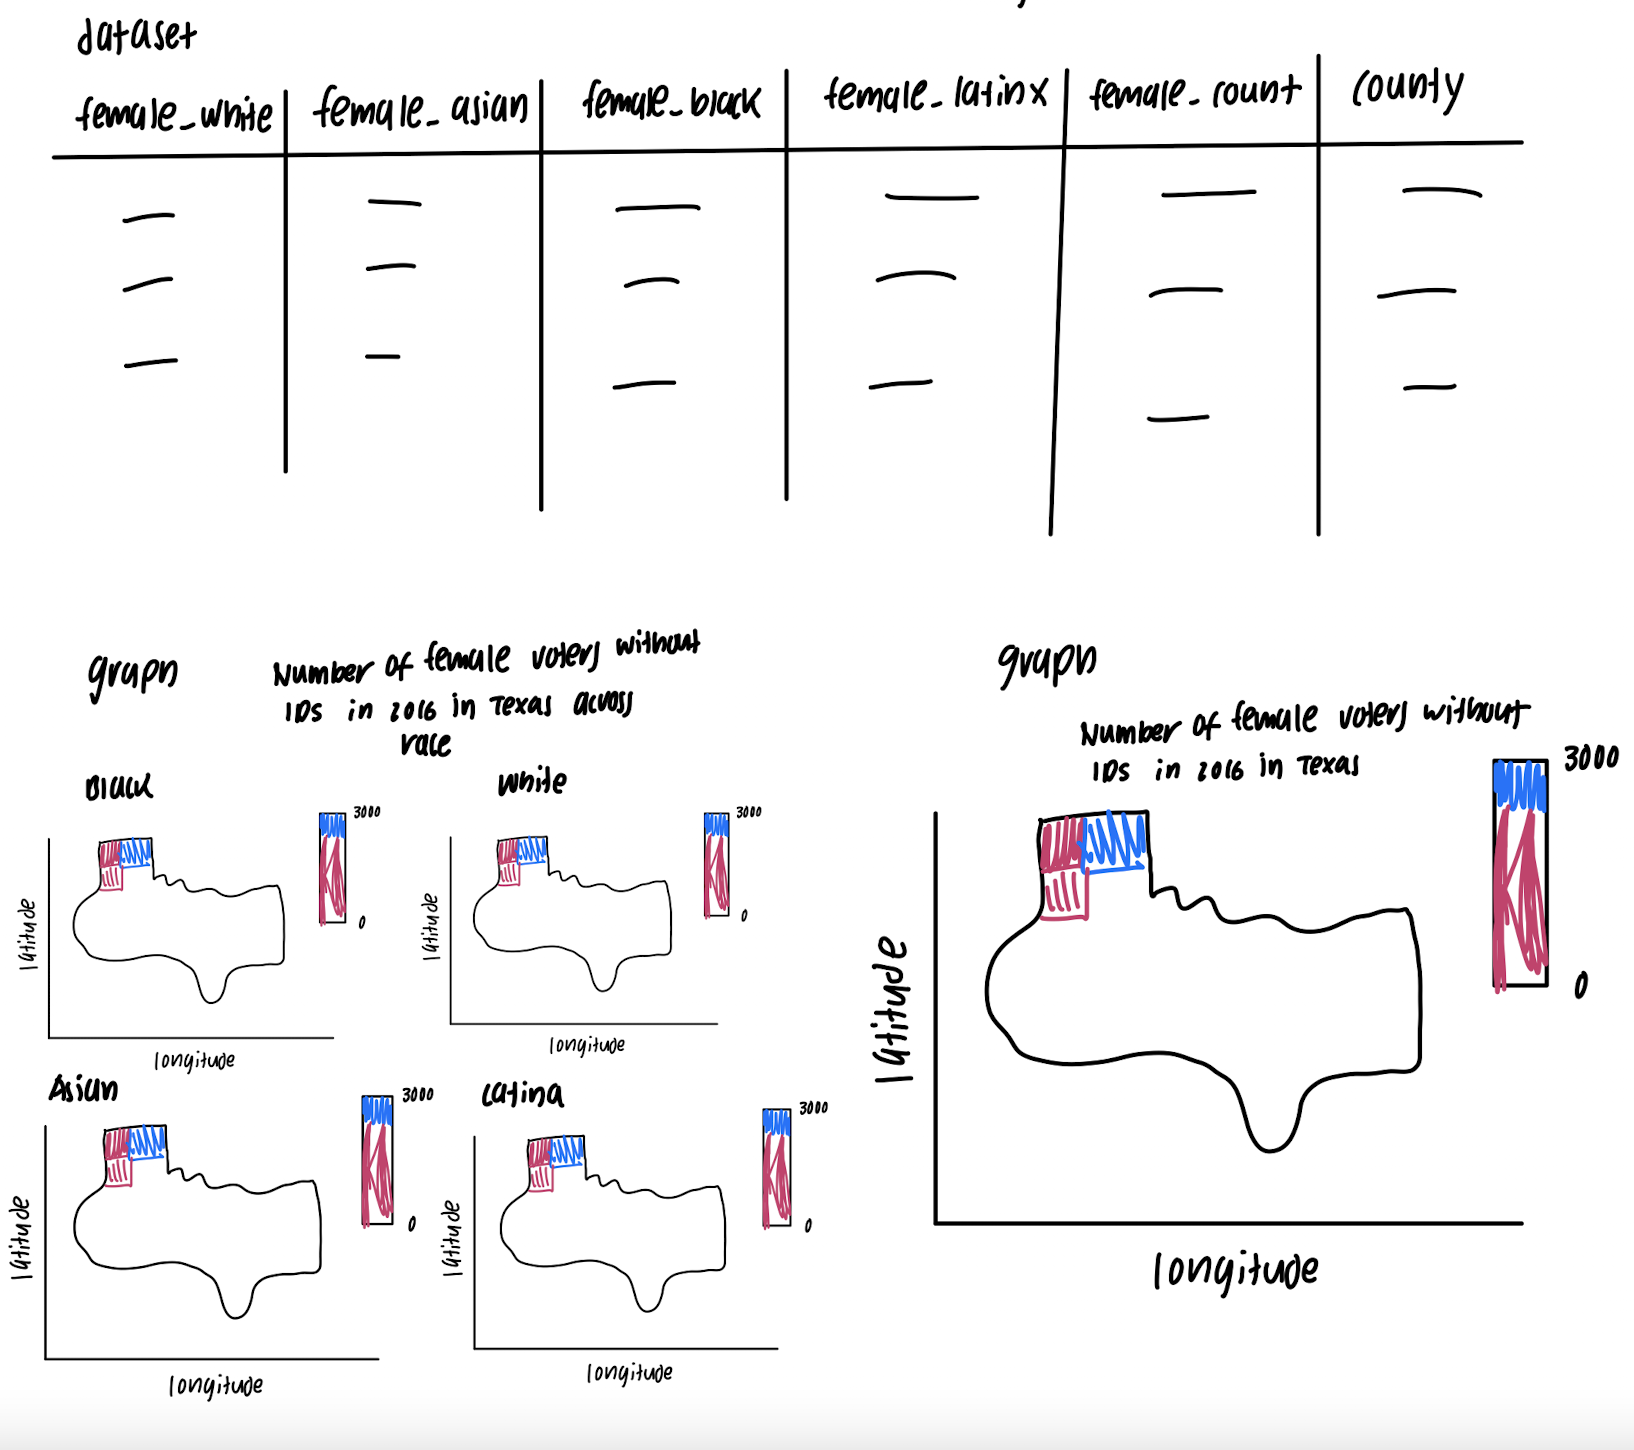 dataset
female_white female_asian female_black female_latinx female_count county
graph
Number of female voters without
IDs in 2016 in Texas across
race
Black
3000
0
latitude
longitude
White
3000
0
latitude
longitude
Asian
3000
0
latitude
longitude
Latina
3000
0
latitude
longitude
graph
Number of female voters without
IDs in 2016 in Texas
3000
0
latitude
longitude